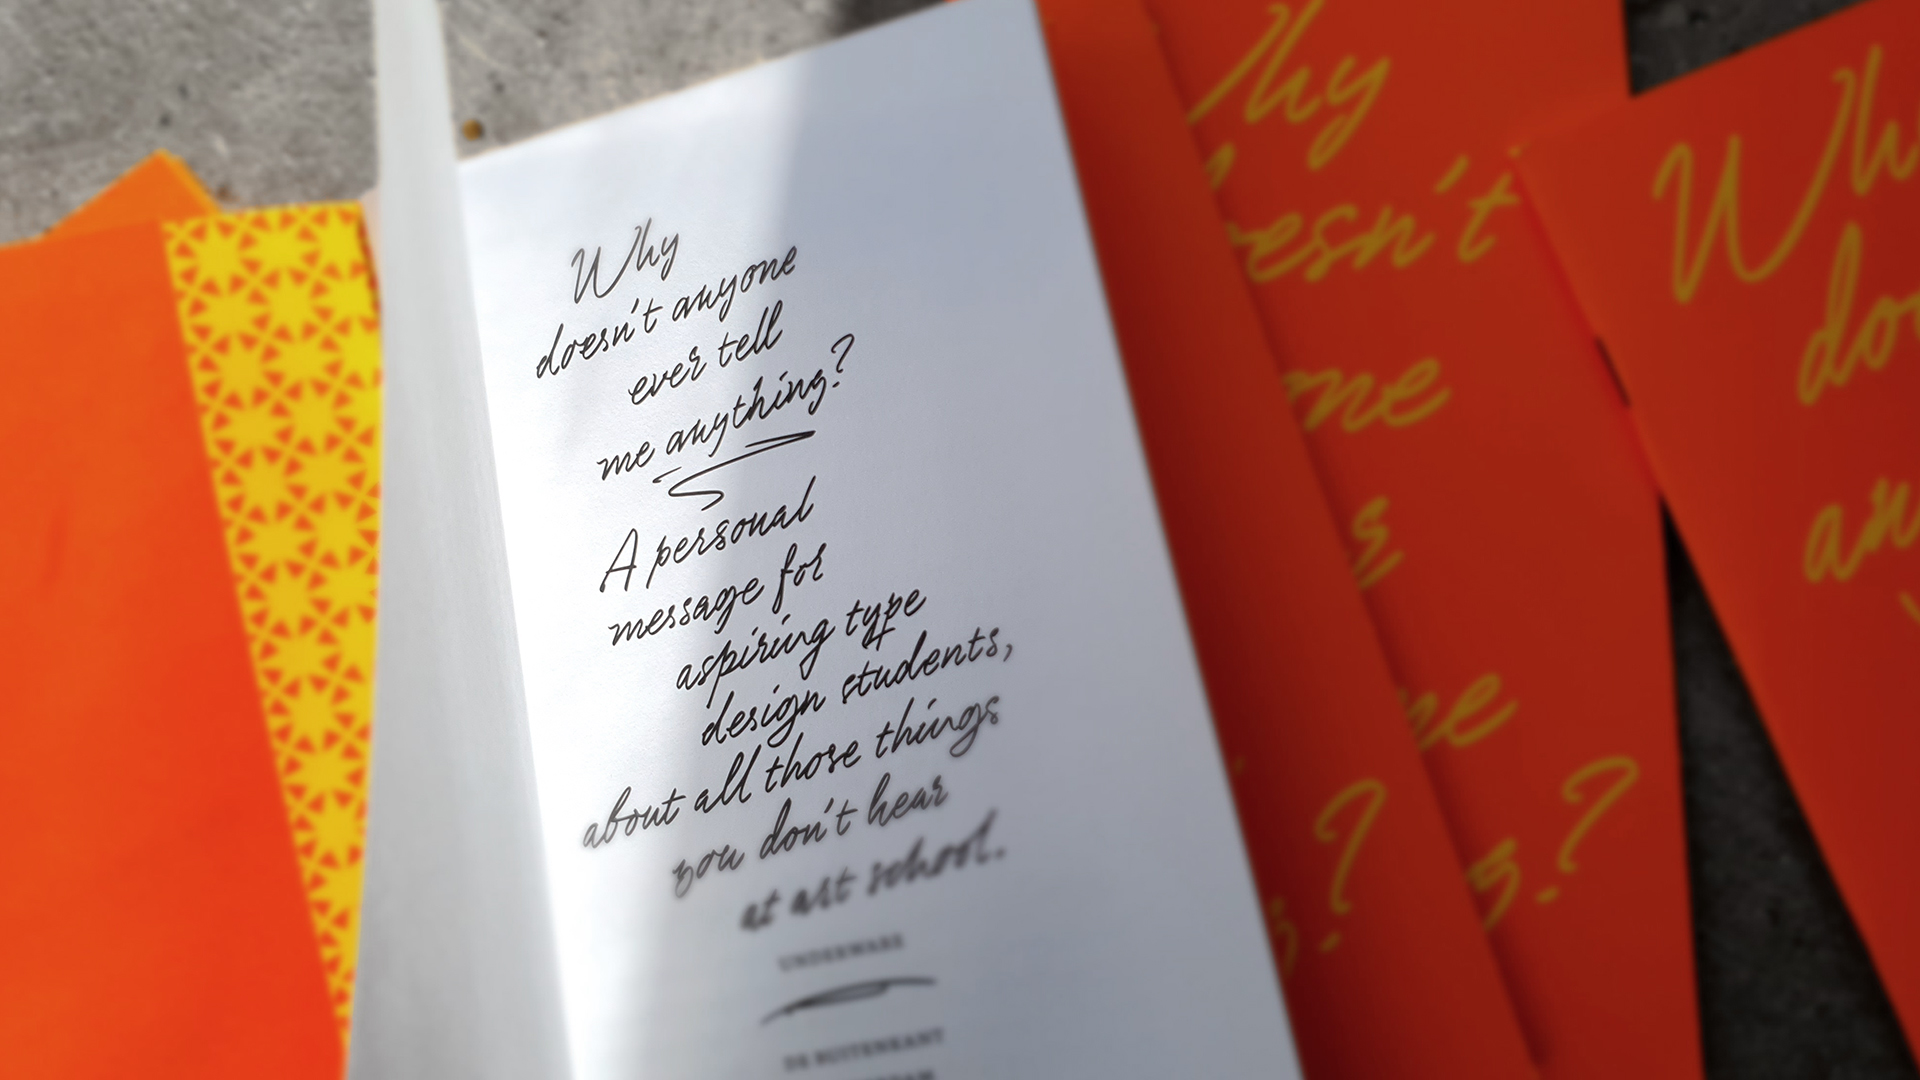 Why
doesn't anyone
ever tell
me anything?
A personal
message for
aspiring type
design students,
about all those things
you don't hear
at art school.
UNDERWARE
DE BUITENKANT
Why
doesn't
?
Wh
do
an